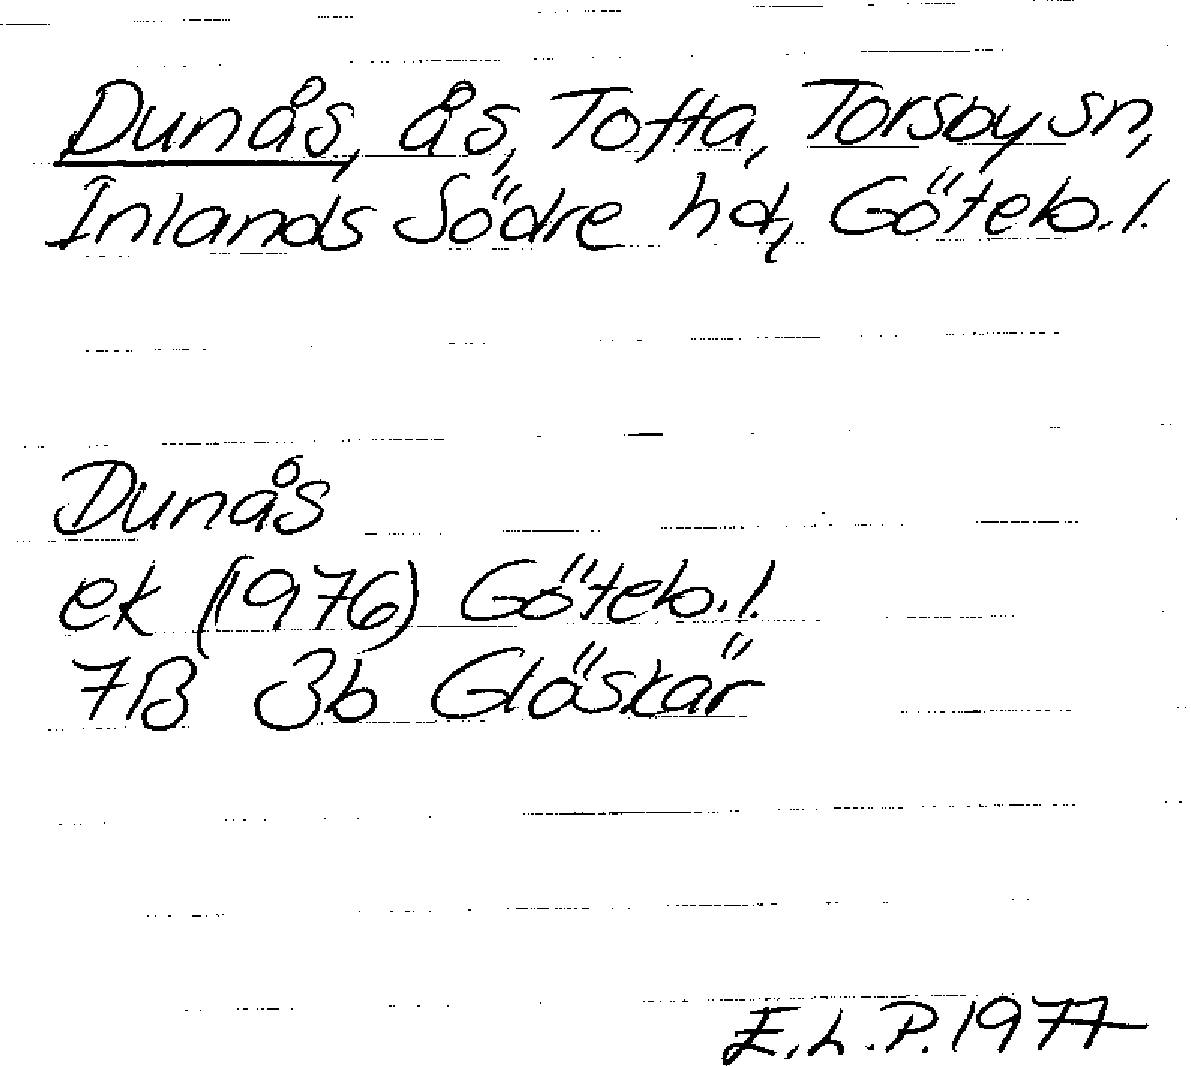 Dunås, ås, Tofta, Torsby sn,
Inlands Södre hd, Göteb. l.
Dunås
ek (1976) Göteb. l.
7B 3b Glöskär
E.L.P. 1977